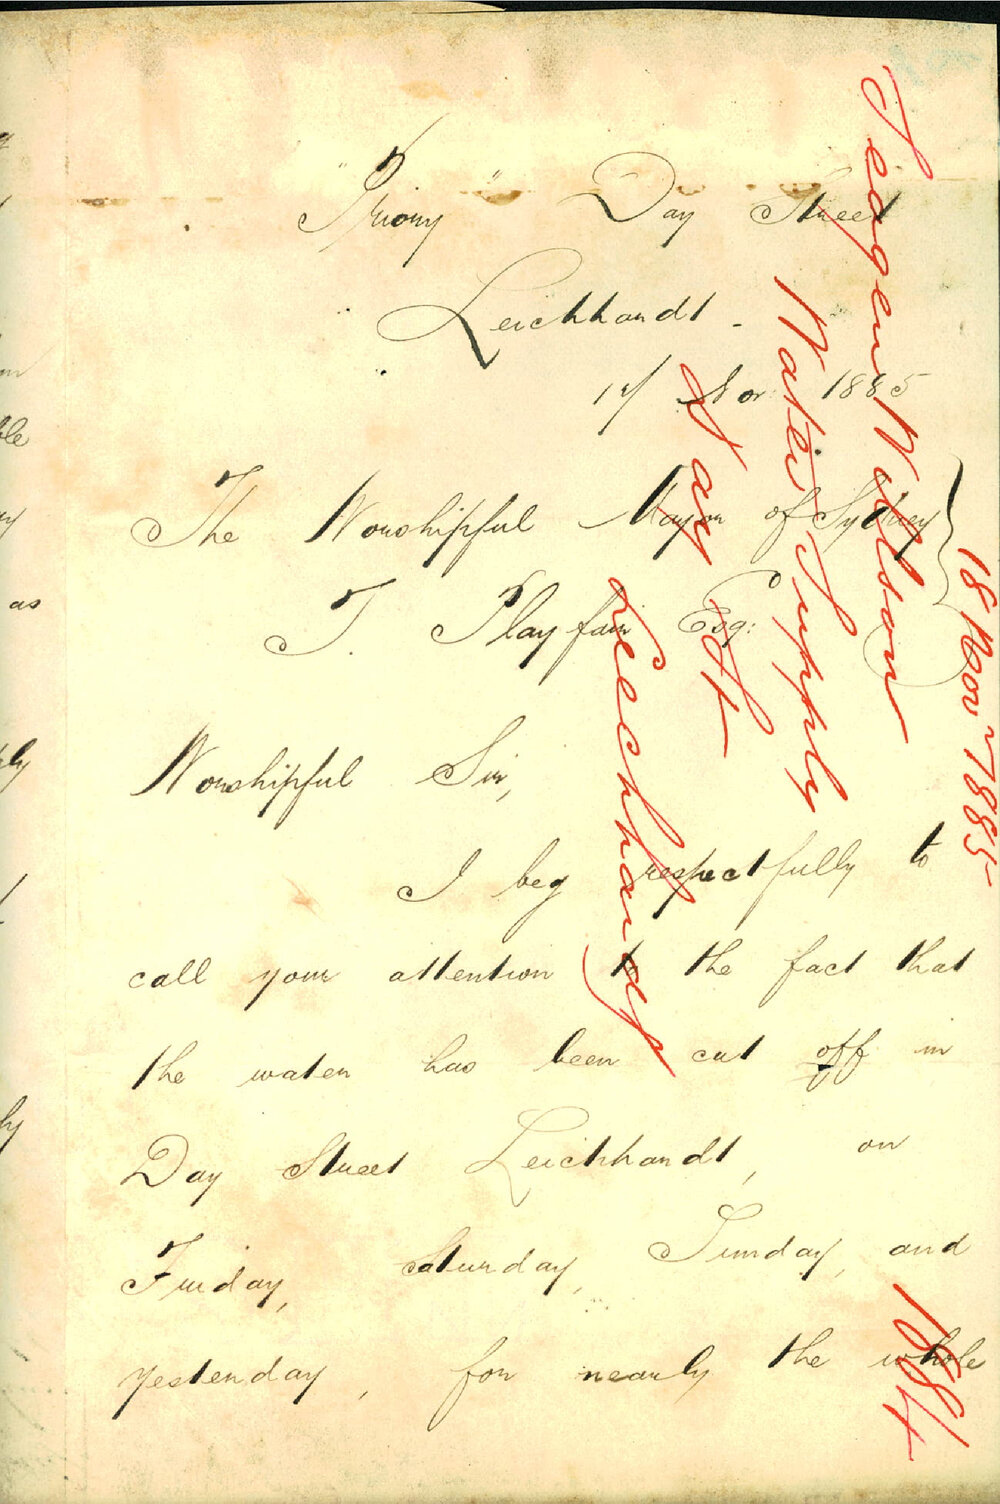 "Priory" Day Street
Leichhardt.
17 Nov: 1885
The Worshipful Mayor of Sydney
T. Playfair Esq:
Worshipful Sir,
I beg respectfully to
call your attention to the fact that
the water has been cut off in
Day Street Leichhardt, on
Friday, Saturday, Sunday, and
yesterday, for nearly the whole
Wilson
Water Supply
Day St
Leichhardt
18 Nov 1885
1884